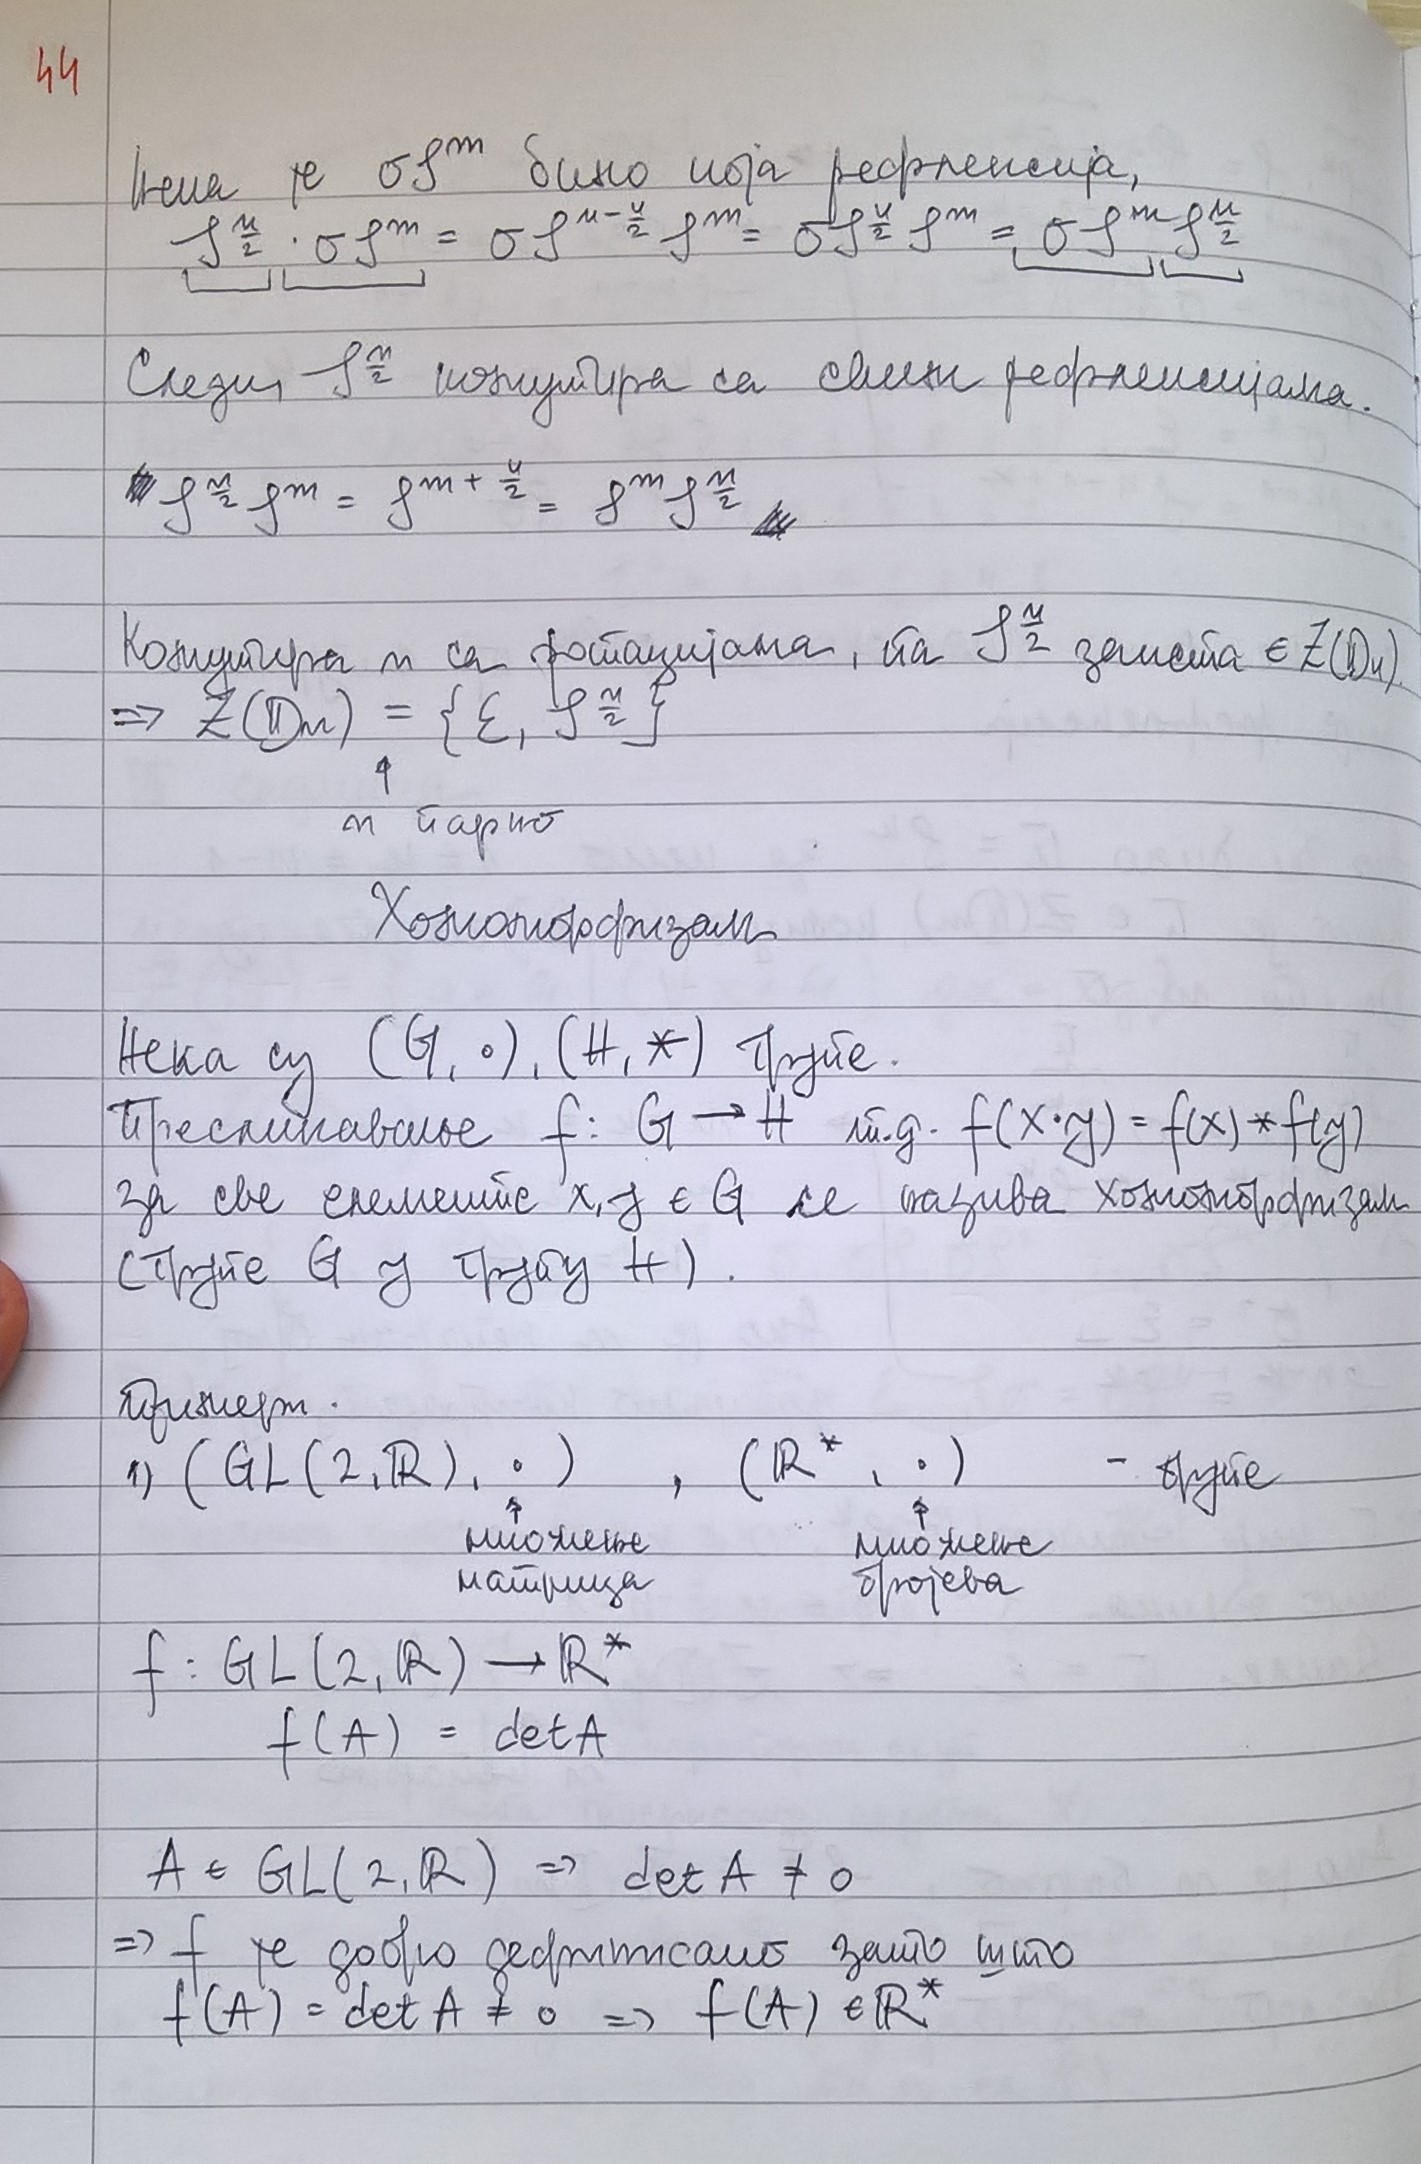 44
Нека је σρ^m било која рефлексија,
ρ^{n/2} · σρ^m = σρ^{n-n/2} ρ^m = σρ^{n/2} ρ^m = σρ^m ρ^{n/2}
Следи, ρ^{n/2} комутира са свим рефлексијама.
ρ^{n/2} ρ^m = ρ^{m+n/2} = ρ^m ρ^{n/2}
Комутира и са ротацијама, па ρ^{n/2} заиста ∈ Z(𝔻n).
=> Z(𝔻n) = {ε, ρ^{n/2}}
↑
n парно
Хомоморфизам
Нека су (G, ∘), (H, *) групе.
Пресликавање f: G → H т.д. f(x·y) = f(x) * f(y)
за све елементе x, y ∈ G се назива хомоморфизам
(групе G у групу H).
Примери.
1) (GL(2,ℝ), ·) , (ℝ*, ·) - групе
↑ ↑
множење множење
матрица бројева
f: GL(2,ℝ) → ℝ*
f(A) = det A
A ∈ GL(2,ℝ) => det A ≠ 0
=> f је добро дефинисано зато што
f(A) = det A ≠ 0 => f(A) ∈ ℝ*